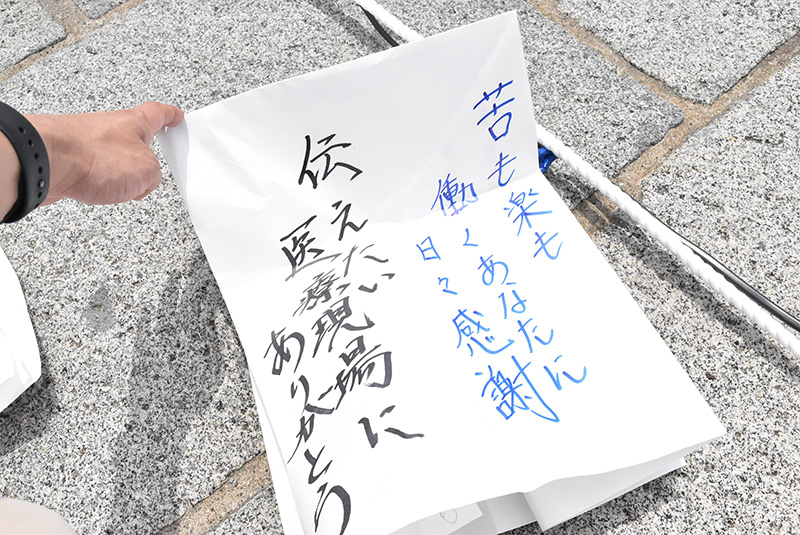 苦も楽も
働くあなたに
日々感謝
伝えたい
医療現場に
ありがとう